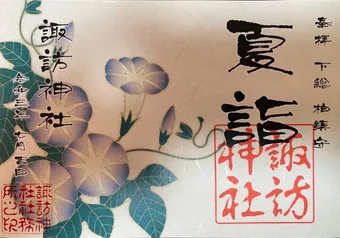 奉拝 下総 柏鎮守
夏詣
諏訪神社
諏訪神社
令和三年 七月
諏訪神社社務所之印